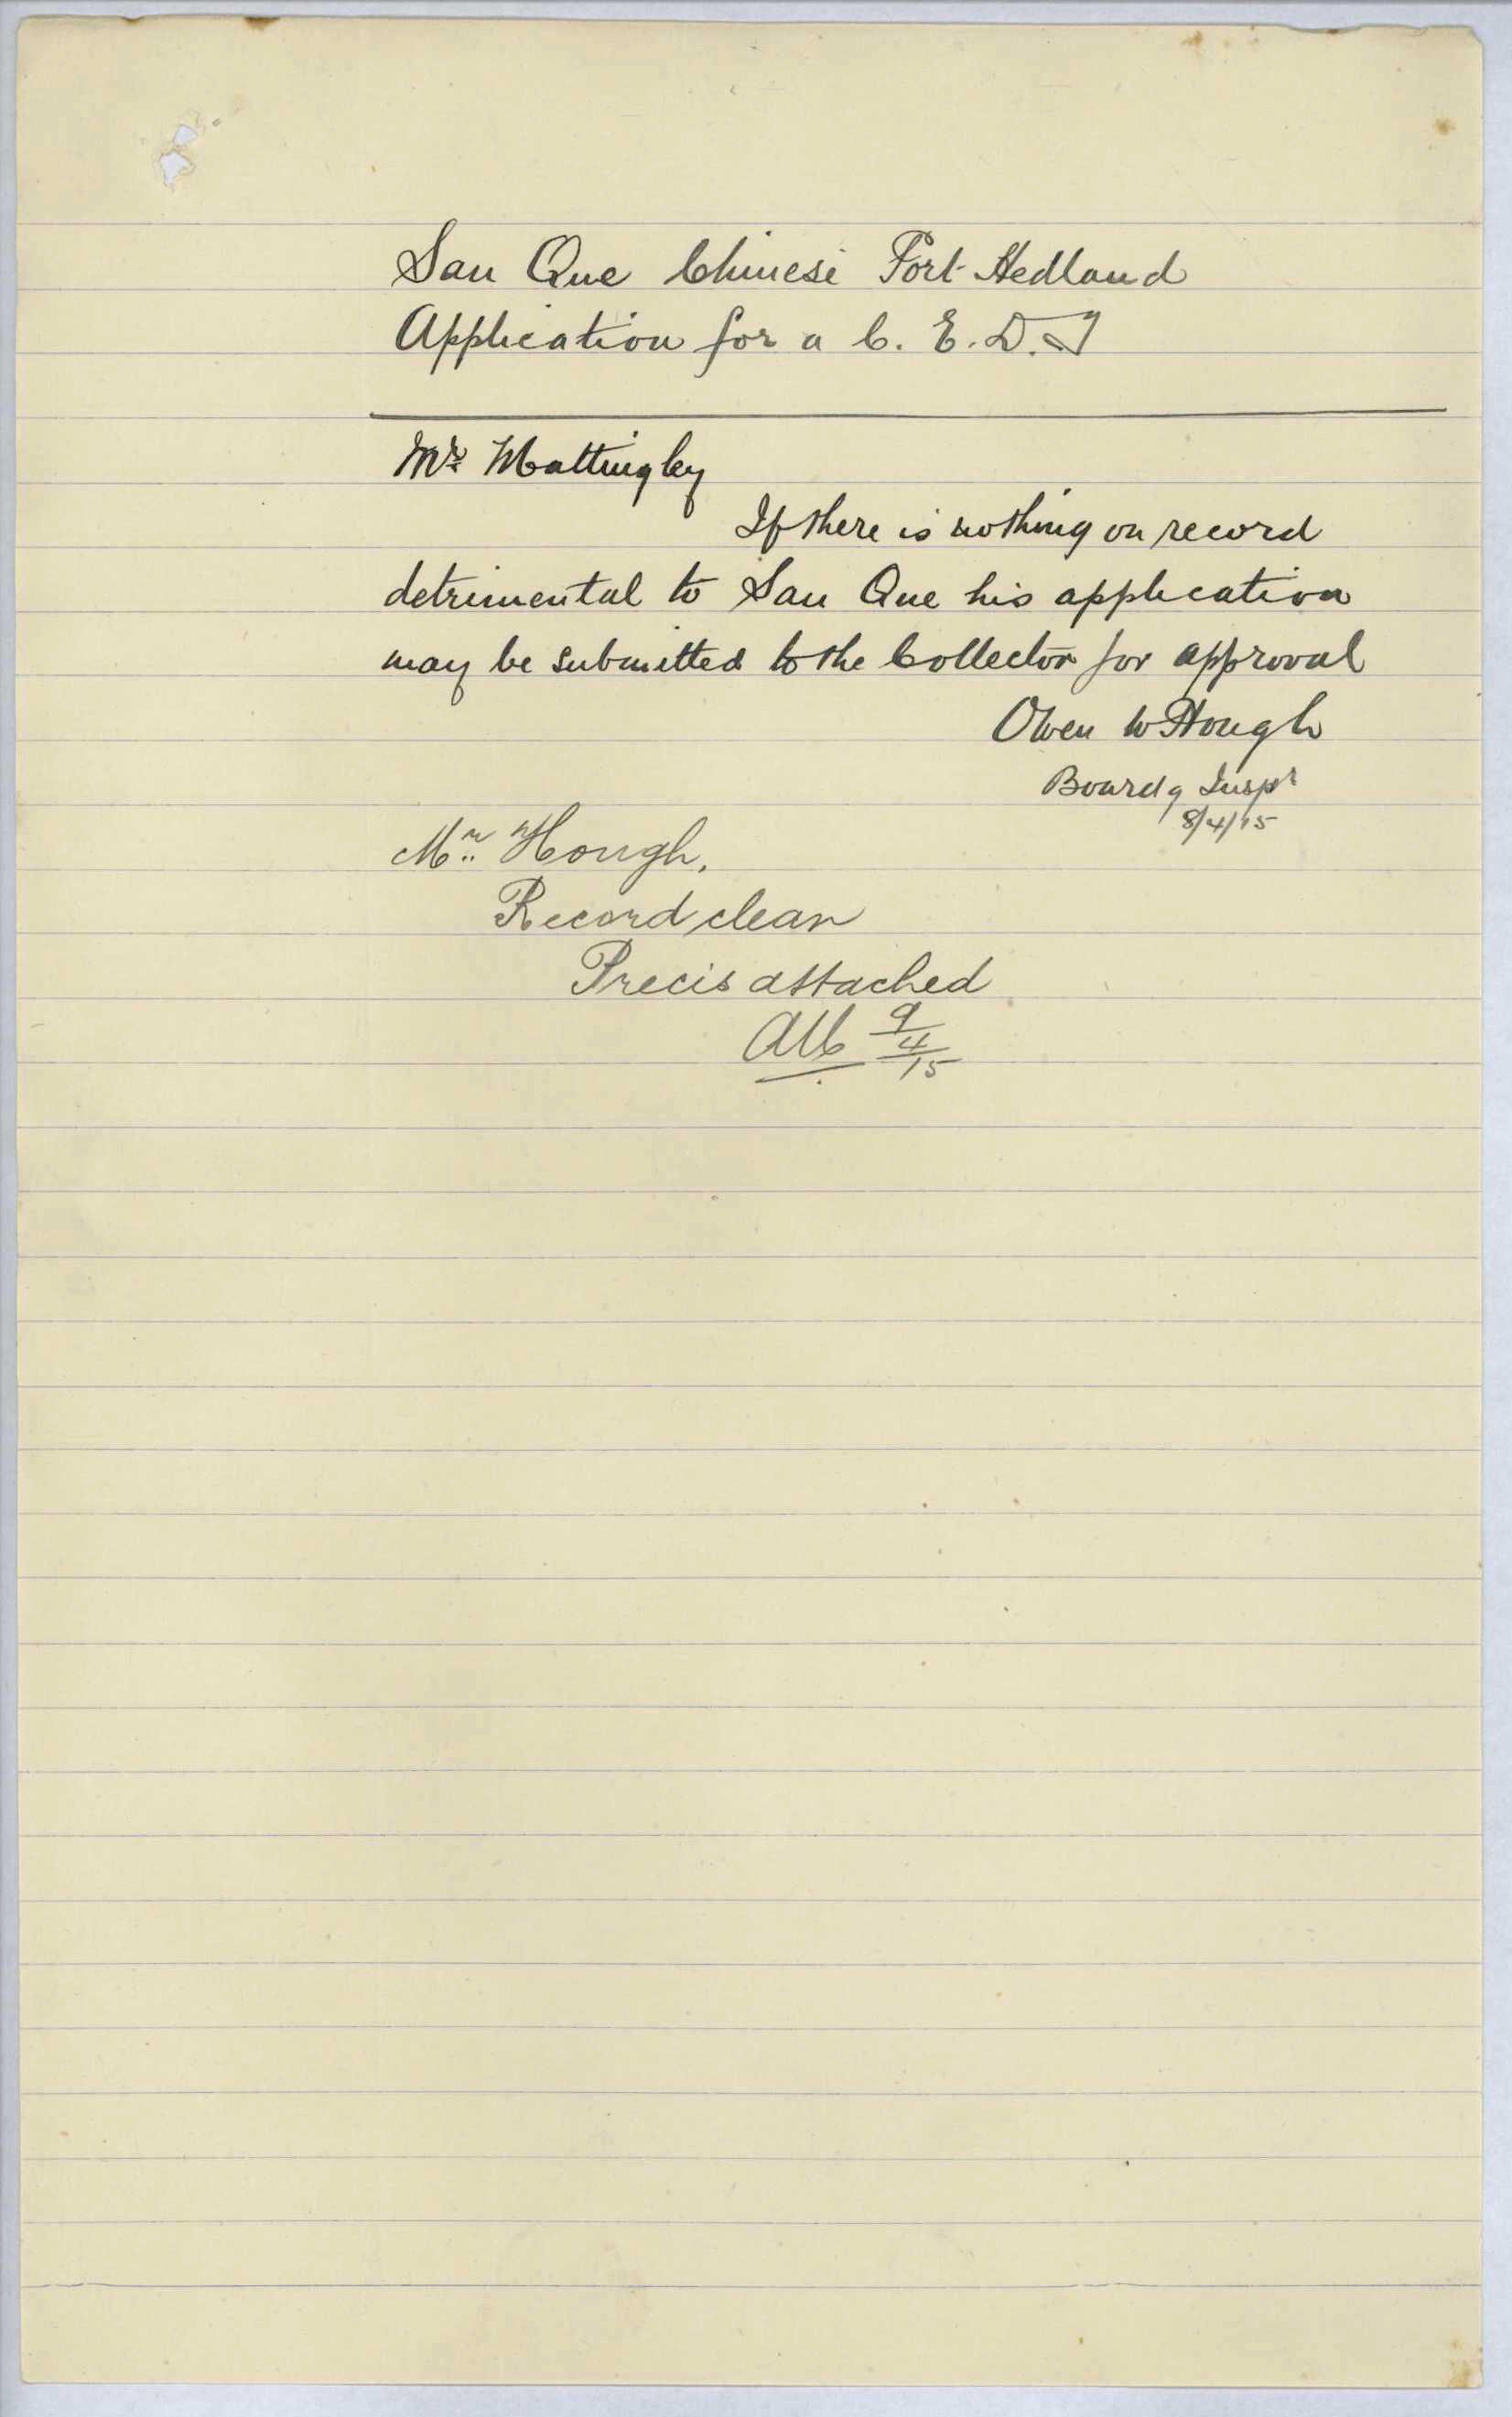 San Que Chinese Port Hedland
Application for a C. E. D. T
Mr Mattingley
If there is nothing on record
detrimental to San Que his application
may be submitted to the Collector for approval
Owen W Hough
Boardg Inspr
8/4/15
Mr Hough.
Record clear
Precis attached
9/4/15